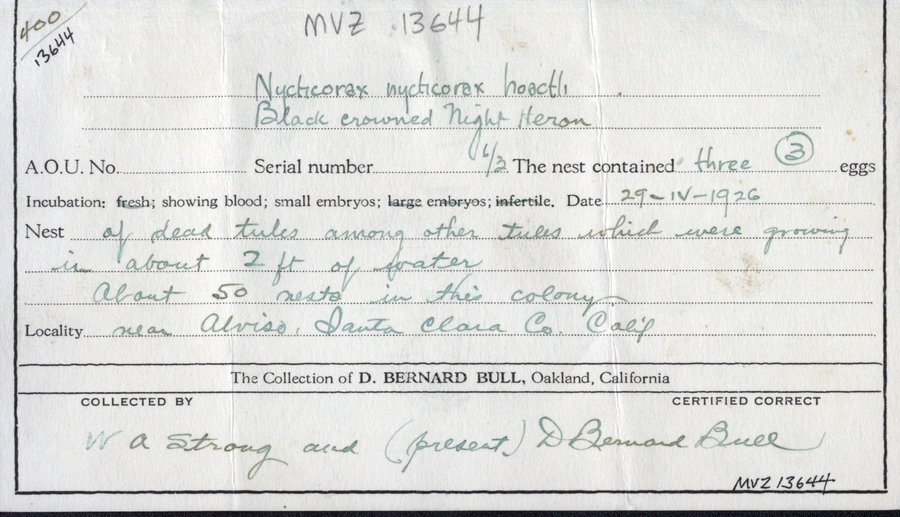 400
13644
MVZ 13644
Nycticorax nycticorax hoactli
Black crowned Night Heron
A.O.U. No. Serial number 6/3 The nest contained three (3) eggs
Incubation: fresh; showing blood; small embryos; large embryos; infertile. Date 29-IV-1926
Nest of dead tules among other tules which were growing
in about 2 ft of water
About 50 nests in this colony
Locality near Alviso, Santa Clara Co. Calif
The Collection of D. BERNARD BULL, Oakland, California
COLLECTED BY CERTIFIED CORRECT
W A Strong and (present) D Bernard Bull
MVZ 13644